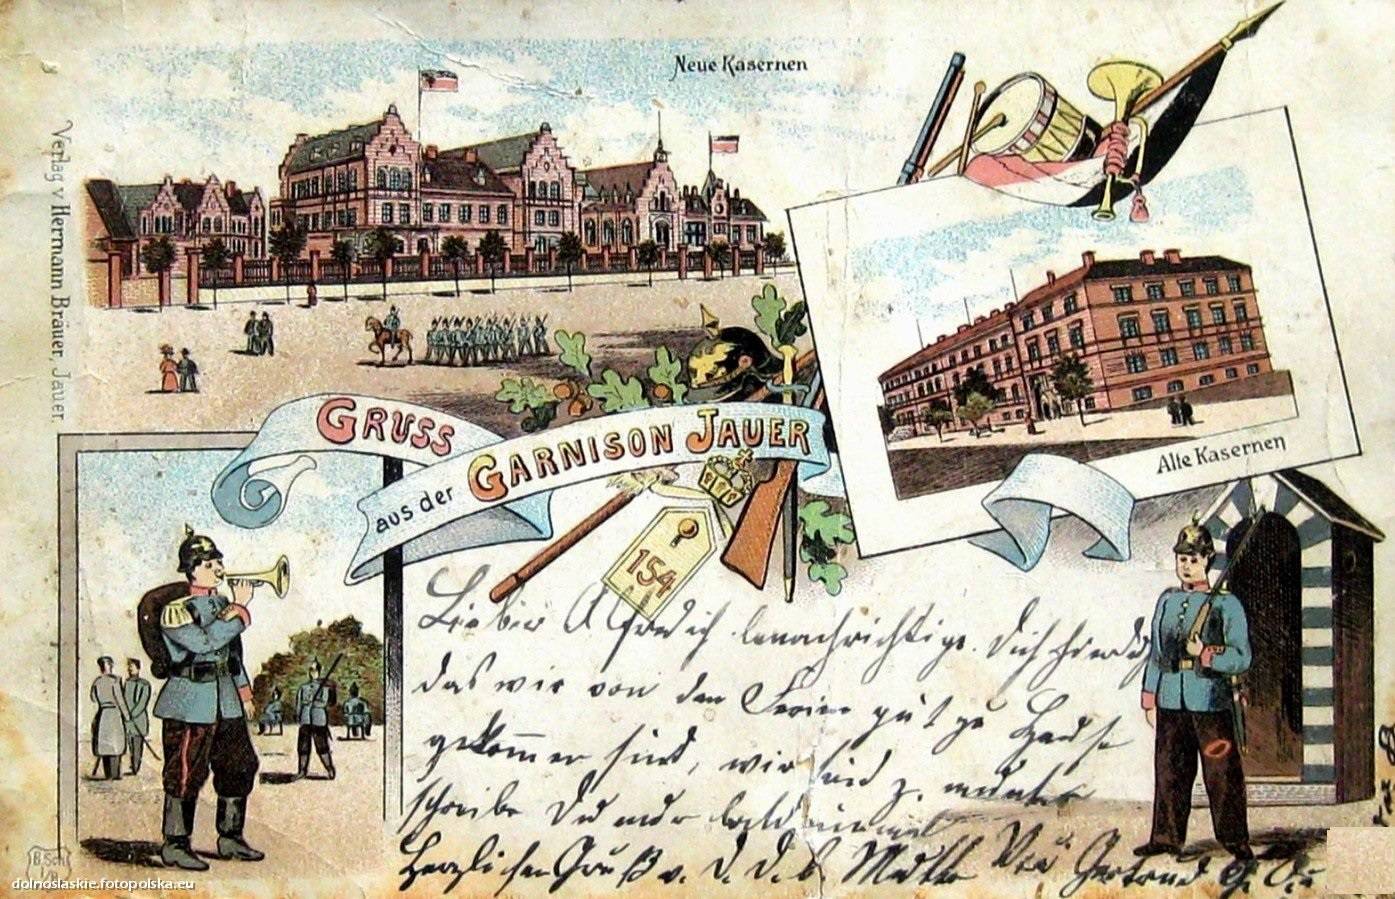 Neue Kasernen
Verlag v. Hermann Bräuer, Jauer.
GRUSS
aus der GARNISON JAUER
Alte Kasernen
154
Lieber Alfred ich benachrichtige Dich hierdurch
das wir von den Ferien gut zu Hause
gekommen sind, wir sind z. munter
schreibe Du nur bald einmal
Herzlichen Gruß v. d. d. b. Mutter Gertrud
dolnoslaskie.fotopolska.eu